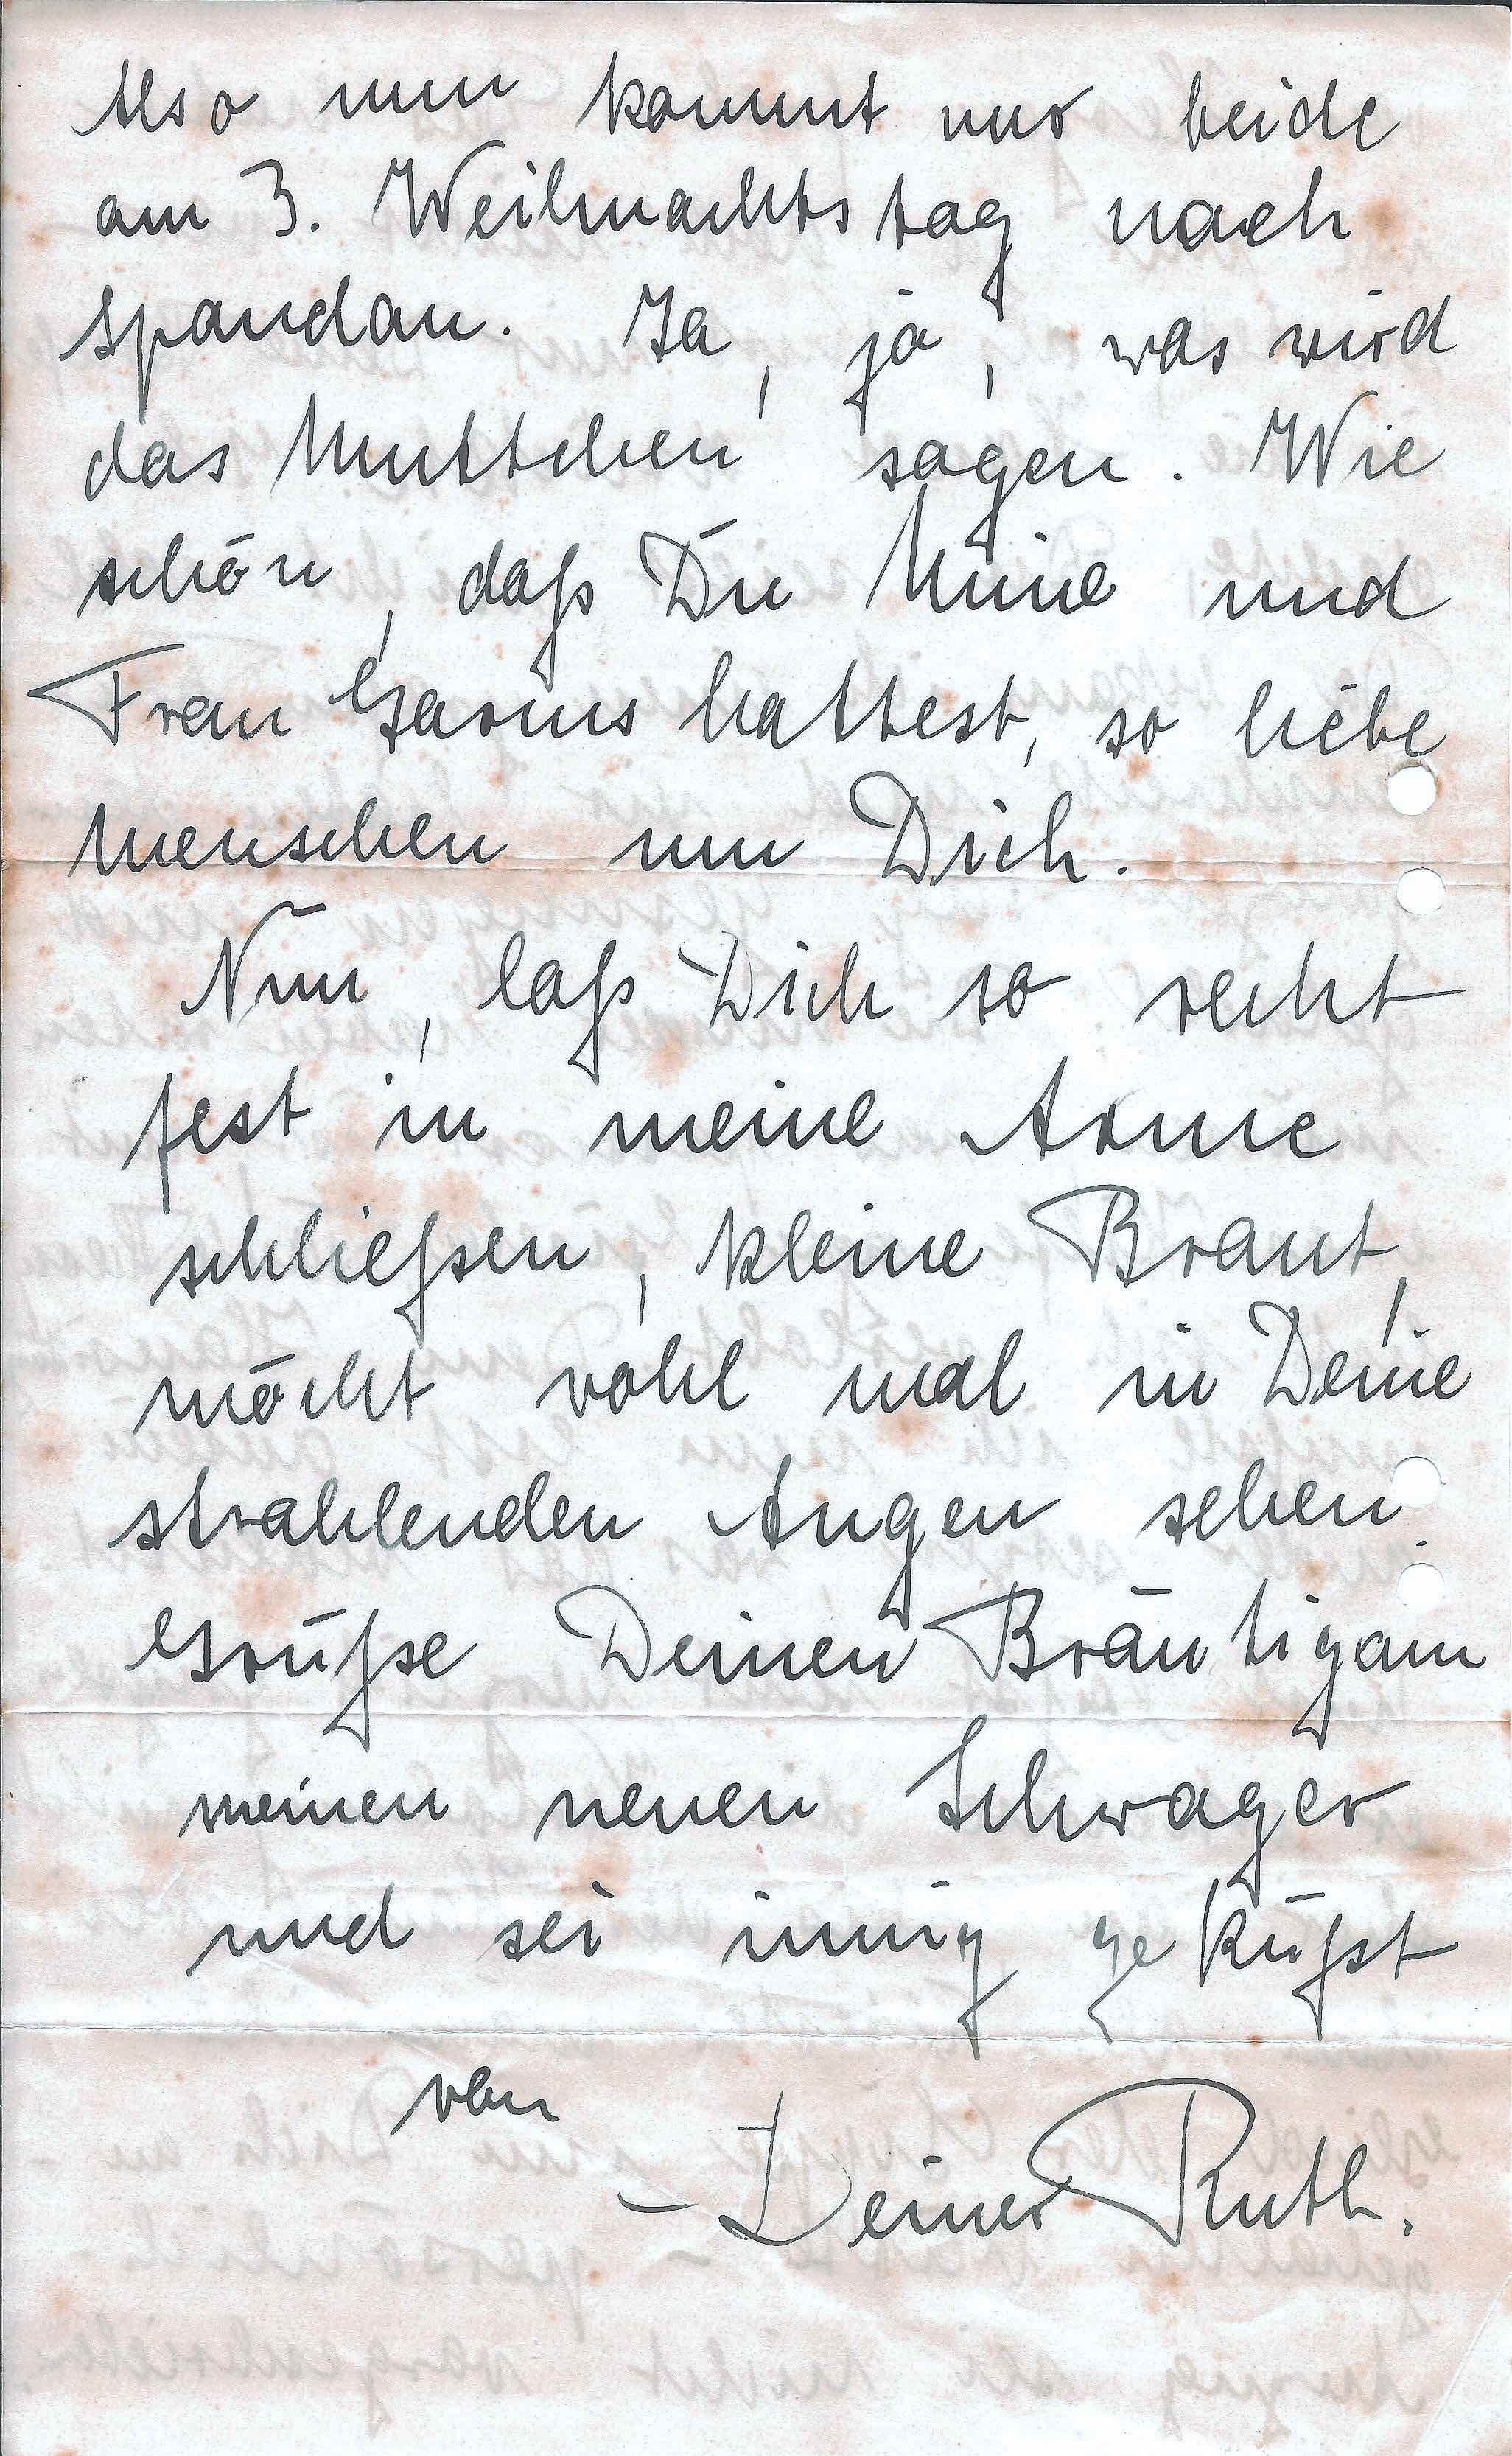 Also nun kommt nur beide
am 3. Weihnachtstag nach
Spandau. Ja, ja, was wird
das Muttchen sagen. Wie
schön, daß Du Mine und
Frau Garms hattest, so liebe
Menschen um Dich.
Nun, laß Dich so recht
fest in meine Arme
schließen, kleine Braut,
möcht wohl mal in Deine
strahlenden Augen sehen.
Grüße Deinen Bräutigam
meinen neuen Schwager
und sei innig geküßt
von
– Deiner Ruth.